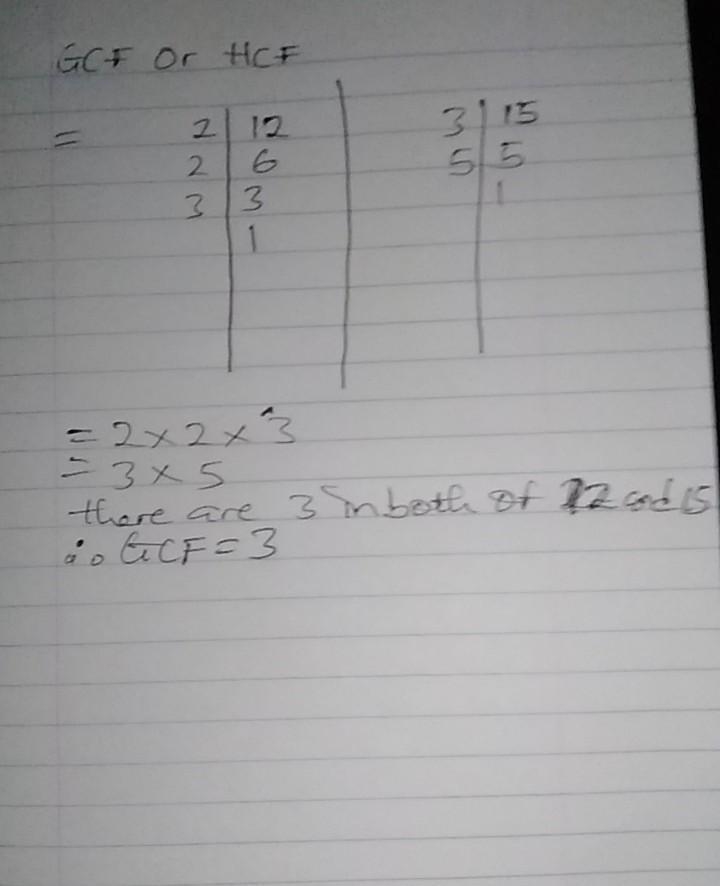 GCF or HCF
= 2 | 12 | 3 | 15
2 | 6 | 5 | 5
3 | 3 | 1
1
= 2 × 2 × 3
= 3 × 5
there are 3 in both of 12 and 15
∴ GCF = 3